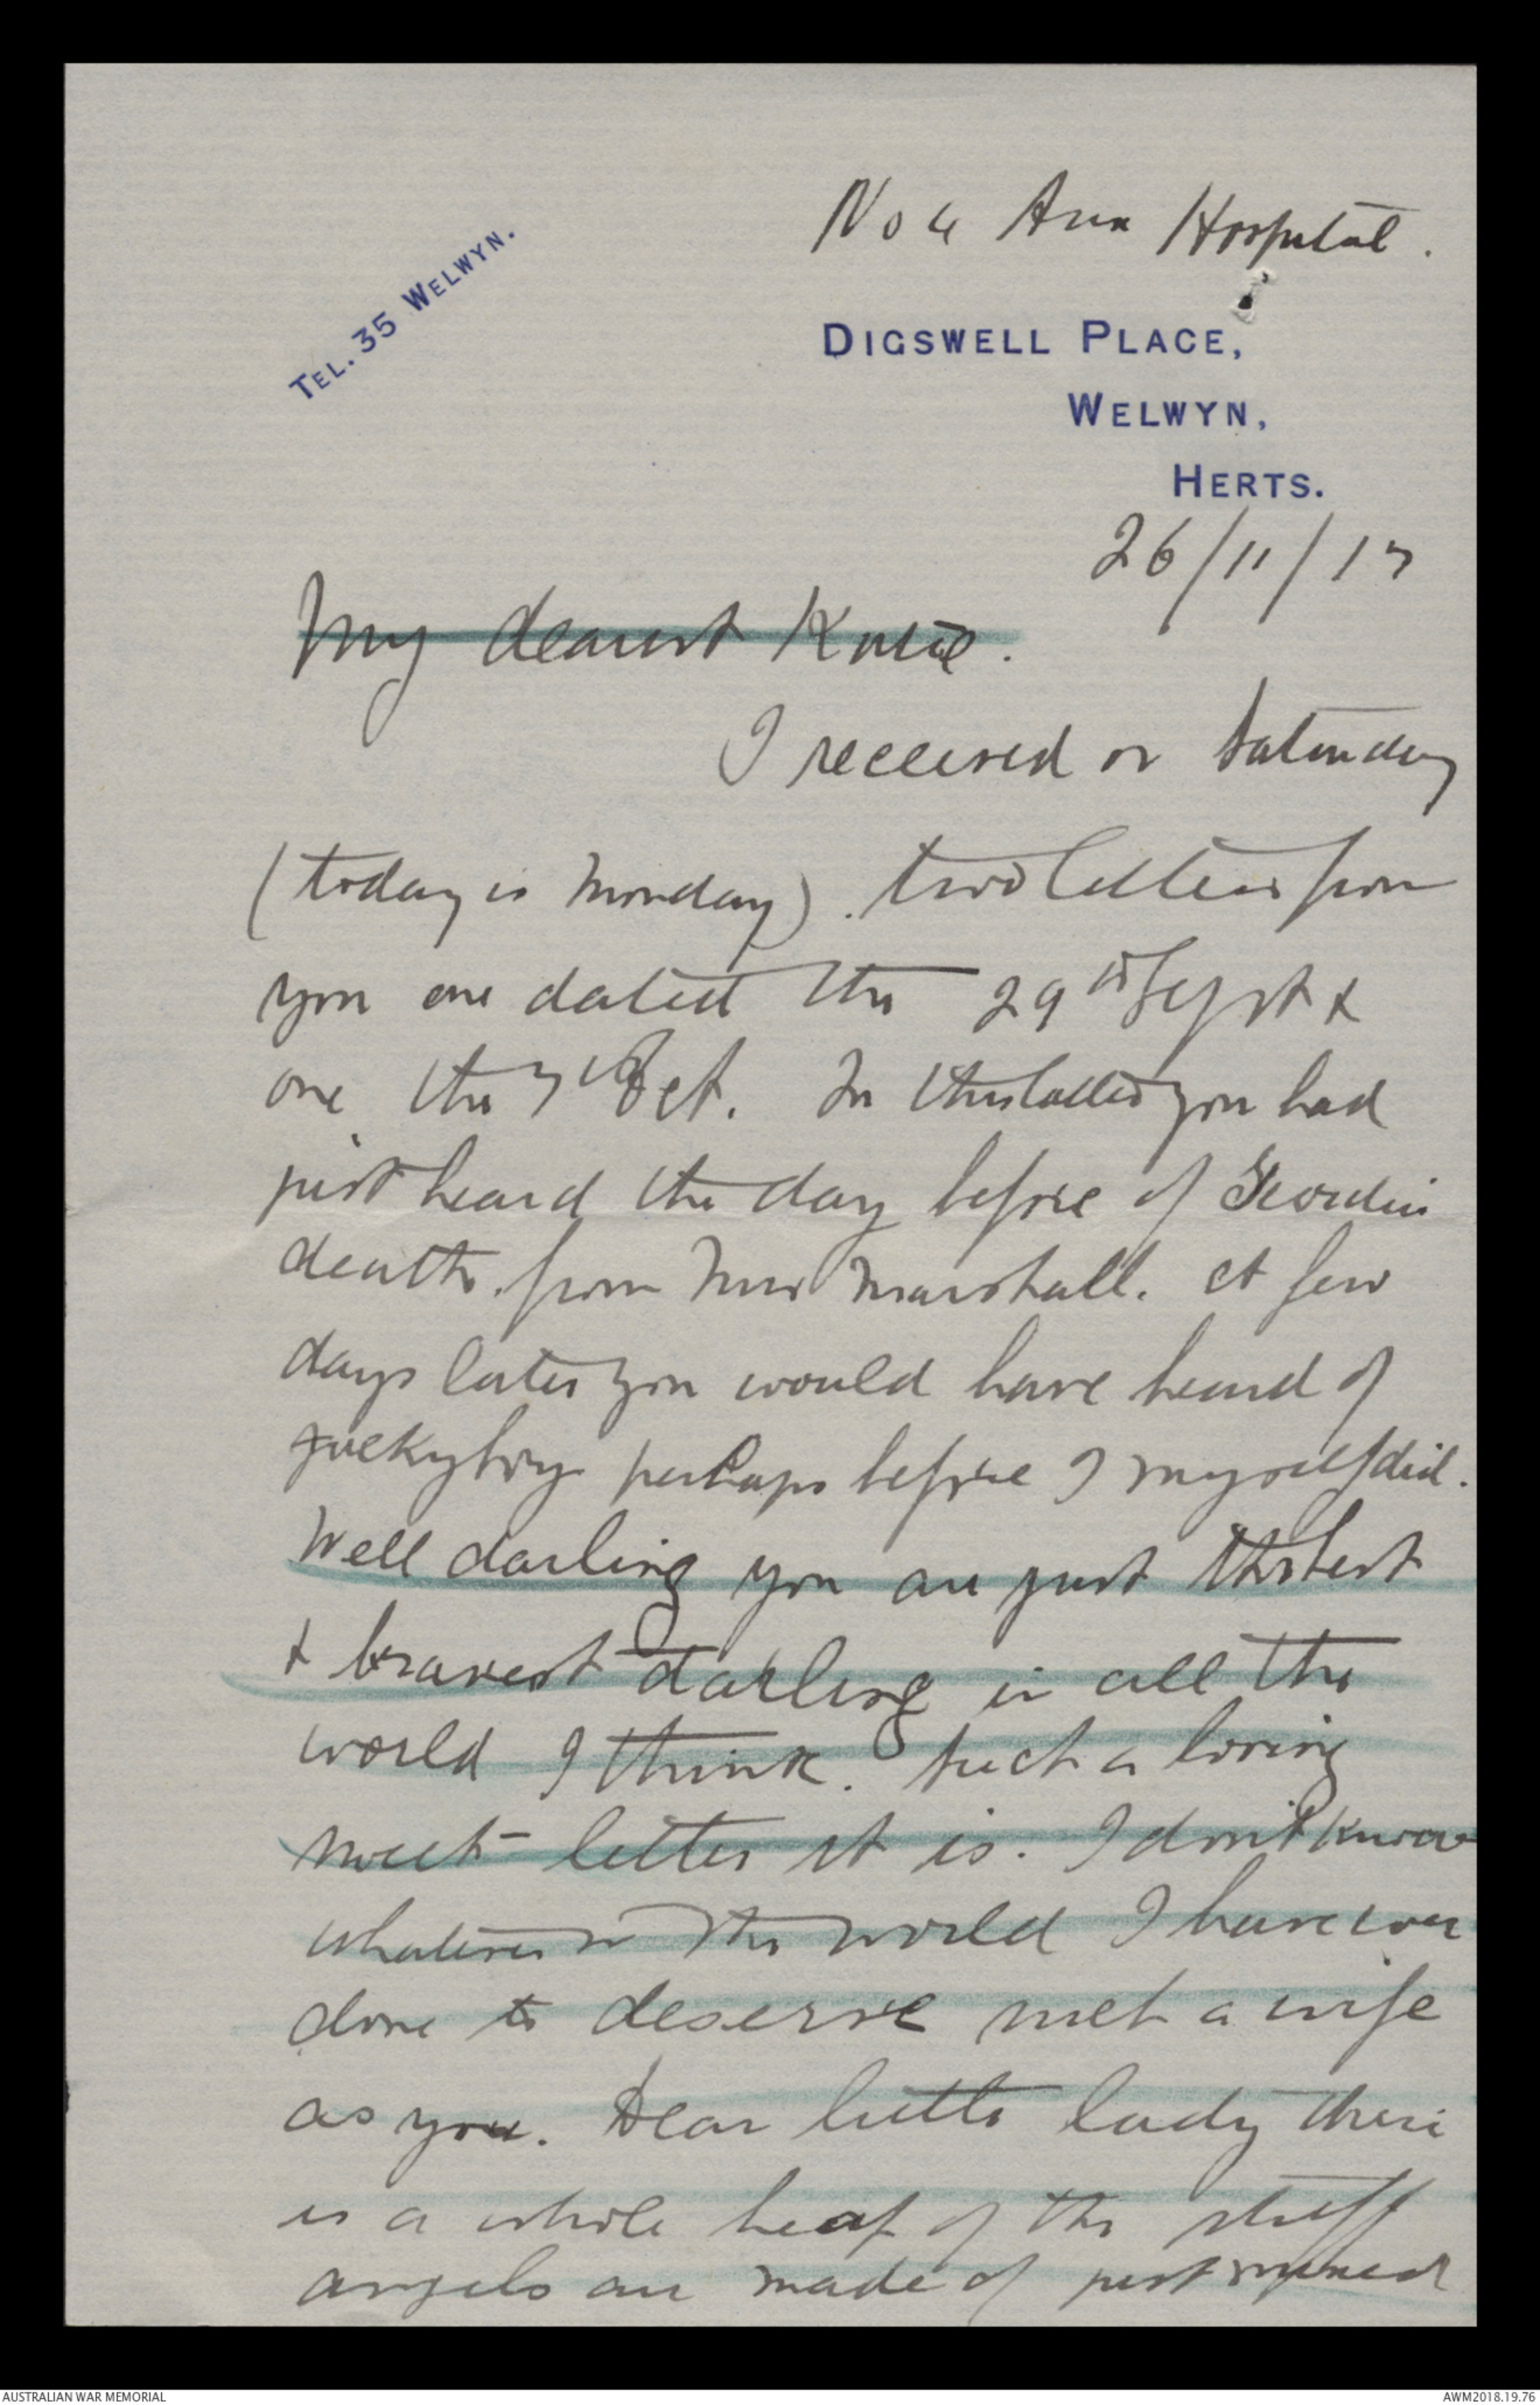 No 4 Aux Hospital.
TEL. 35 WELWYN.
DIGSWELL PLACE,
WELWYN,
HERTS.
26/11/17
My dearest Katie.
I received on Saturday
(today is Monday). two letters from
you one dated the 29th Sept &
one the 7th Oct. In this latter you had
just heard the day before of Geordie's
death. from Mrs Marshall. A few
days later you would have heard of
Jackyboy perhaps before I myself did.
Well darling you are just the best
& bravest darling in all the
world I think. Such a loving
sweet letter it is. I don't know
whatever in the world I have ever
done to deserve such a wife
as you. Dear little lady there
is a whole heap of the stuff
angels are made of just
AUSTRALIAN WAR MEMORIAL
AWM2018.19.76